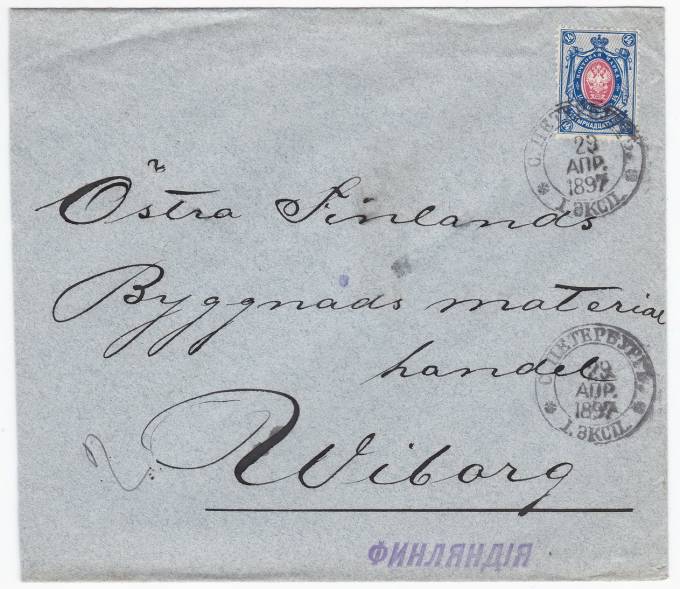 14 14
ПОЧТОВАЯ МАРКА
14 14
С. ПЕТЕРБУРГЪ.
29
АПР.
1897
1. ЭКСП.
Östra Finlands
Byggnads material
handel
С. ПЕТЕРБУРГЪ.
29
АПР.
1897
1. ЭКСП.
Wiborg
ФИНЛЯНДІЯ